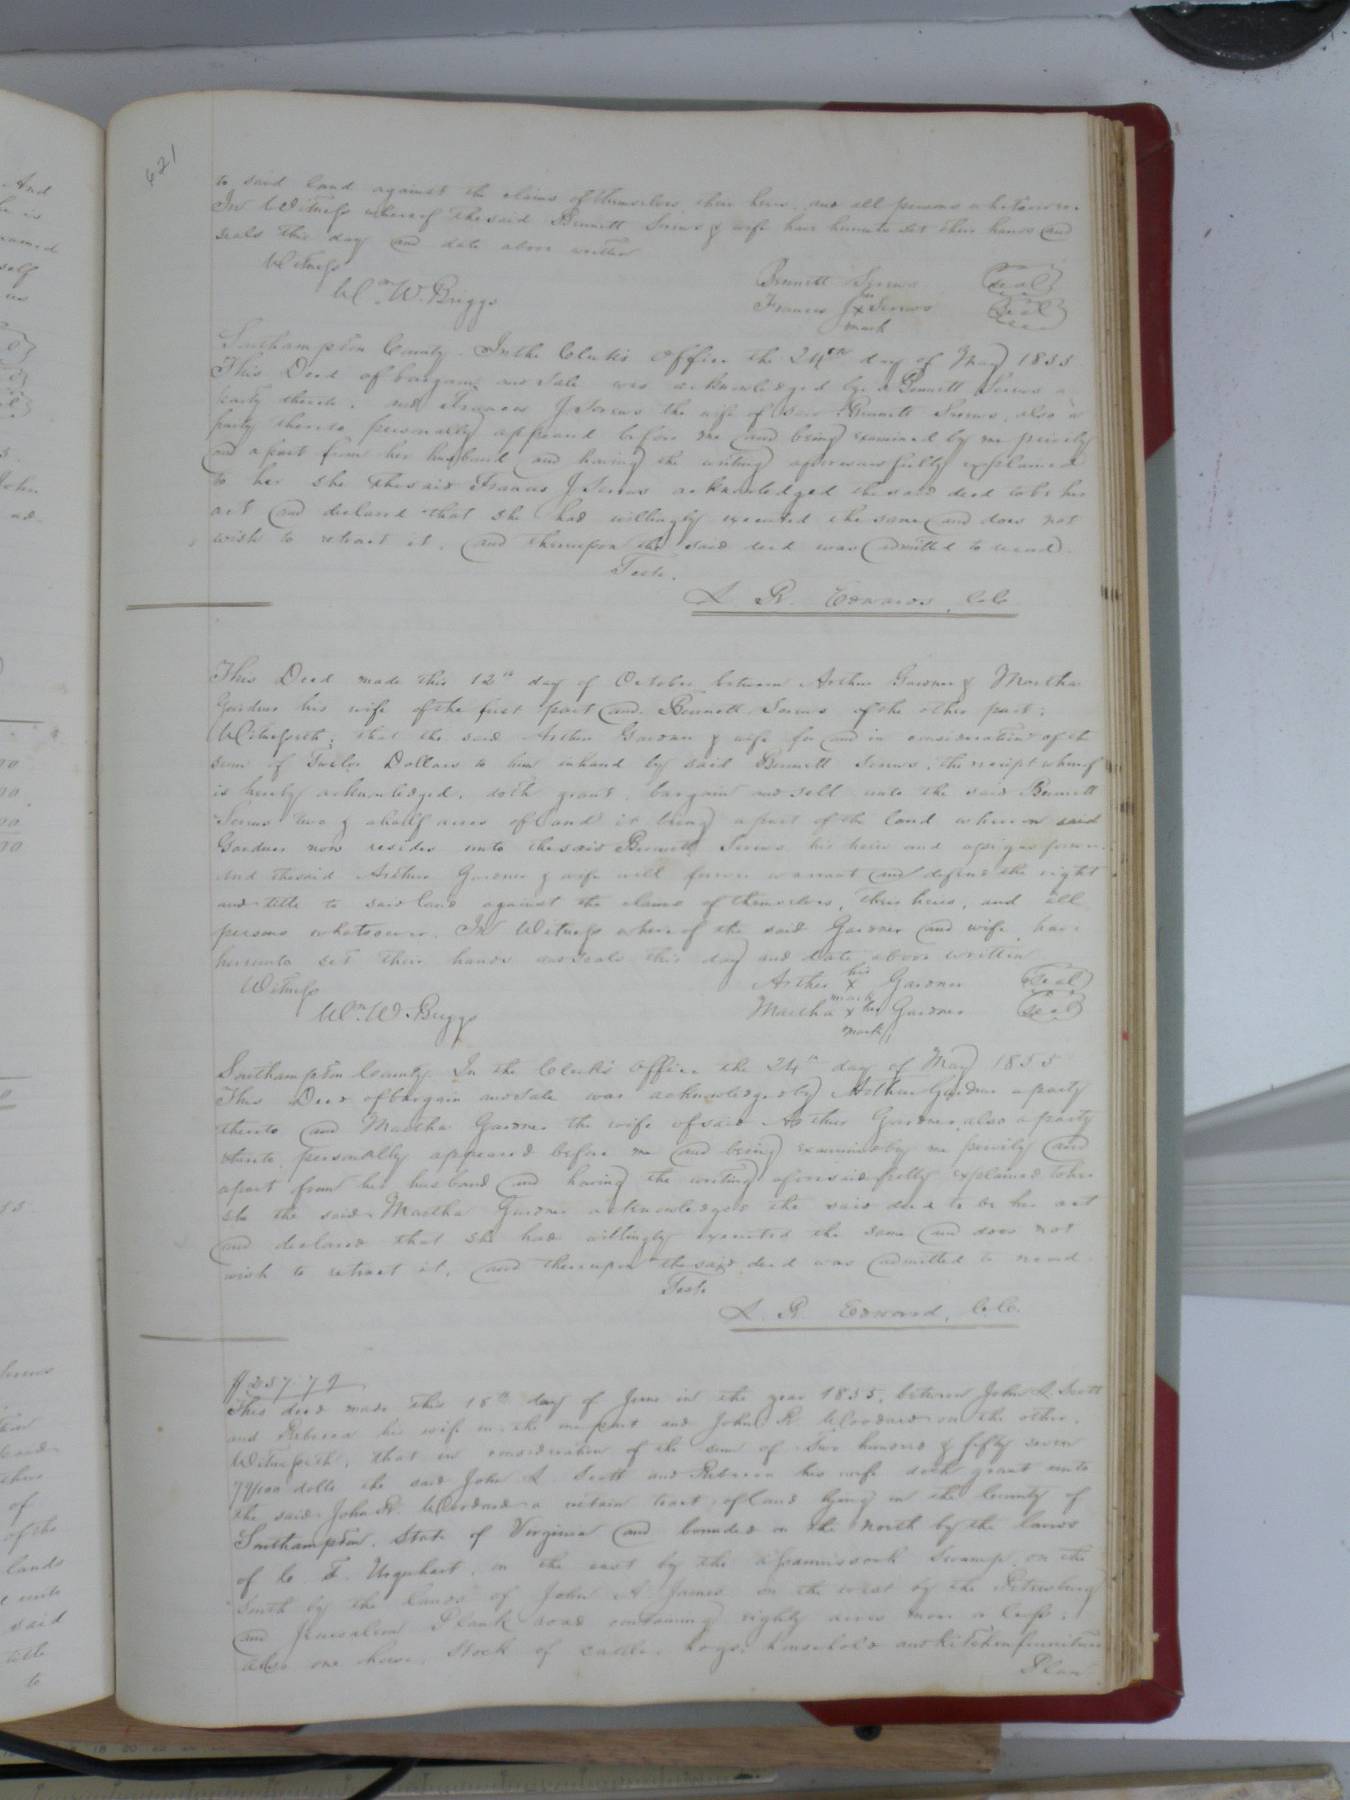 621
to said land against the claims of themselves their heirs, and all persons whatsoever.
In Witness whereof the said Bennett Screws & wife have hereunto set their hands and
seals this day and date above written
Witness
Wm W. Briggs
Bennett Screws (Seal)
Frances J x Screws (Seal)
mark
Southampton County. In the Clerk's Office the 24th day of May 1855
This Deed of bargain and sale was acknowledged by Bennett Screws a
party thereto. and Frances J Screws the wife of said Bennett Screws, also a
party thereto personally appeared before me and being examined by me privily
and apart from her husband and having the writing aforesaid fully explained
to her she the said Frances J Screws acknowledged the said deed to be her
act and declared that she had willingly executed the same and does not
wish to retract it, and thereupon the said deed was admitted to record.
Teste,
L R. Edwards, C.C.
This Deed made this 12th day of October between Arthur Gardner & Martha
Gardner his wife of the first part and Bennett Screws of the other part:
Witnesseth; that the said Arthur Gardner & wife for and in consideration of the
sum of Twelve Dollars to him in hand by said Bennett Screws, the receipt whereof
is hereby acknowledged, doth grant, bargain and sell unto the said Bennett
Screws two & a half acres of land it being a part of the land whereon said
Gardner now resides unto the said Bennett Screws his heirs and assigns forever.
And the said Arthur Gardner & wife will forever warrant and defend the right
and title to said land against the claims of themselves, their heirs, and all
persons whatsoever. In Witness whereof the said Gardner and wife have
hereunto set their hands and seals this day and date above written
Witness
Wm W. Briggs
Arthur his x mark Gardner (Seal)
Martha x her Gardner (Seal)
mark
Southampton County. In the Clerk's Office the 24th day of May 1855
This Deed of bargain and sale was acknowledged by Arthur Gardner a party
thereto and Martha Gardner the wife of said Arthur Gardner, also a party
thereto, personally appeared before me and being examined by me privily and
apart from her husband and having the writing aforesaid fully explained to her
she the said Martha Gardner acknowledged the said deed to be her act
and declared that she had willingly executed the same and does not
wish to retract it, and thereupon the said deed was admitted to record.
Teste
L. R. Edwards, C.C.
$257.79
This deed made this 18th day of June in the year 1855, between John L. Scott
and Rebecca his wife on the one part and John R. Woodard on the other.
Witnesseth, that in consideration of the sum of Two hundred & fifty seven
79/100 dolls the said John L. Scott and Rebecca his wife doth grant unto
the said John R. Woodard a certain tract of land lying in the County of
Southampton, State of Virginia and bounded on the North by the lands
of C. F. Urquhart, on the east by the Assamoosock Swamp, on the
South by the lands of John A James on the west by the Petersburg
and Jerusalem Plank road containing eighty acres more or less;
also one horse, Stock of cattle, hogs, household and kitchen furniture
Plan